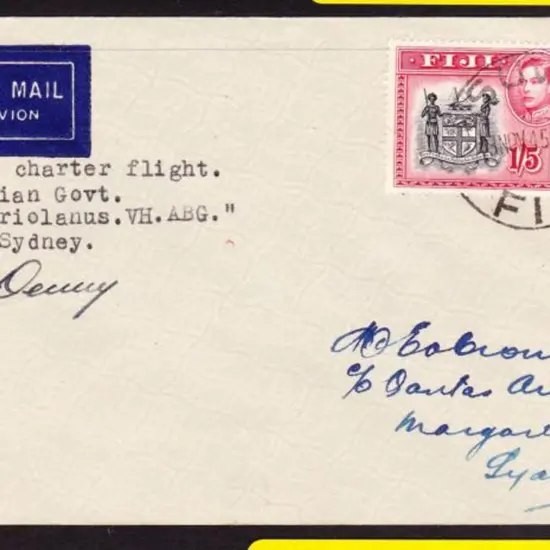 MAIL
VION
FIJI
1/5
NOV 45
FI
charter flight.
ian Govt.
riolanus.VH.ABG."
Sydney.
Denny
c/o Qantas
Margar
Syd